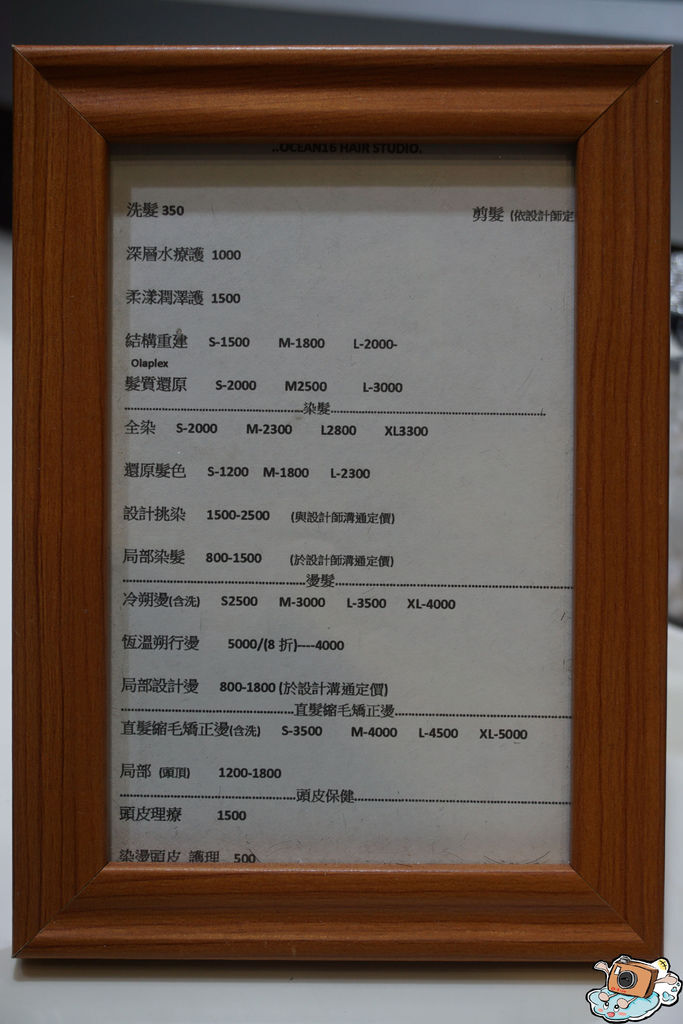 ..OCEAN16 HAIR STUDIO.
洗髮 350 剪髮 (依設計師定
深層水療護 1000
柔漾潤澤護 1500
結構重建 S-1500 M-1800 L-2000-
Olaplex
髮質還原 S-2000 M2500 L-3000
染髮
全染 S-2000 M-2300 L2800 XL3300
還原髮色 S-1200 M-1800 L-2300
設計挑染 1500-2500 (與設計師溝通定價)
局部染髮 800-1500 (於設計師溝通定價)
燙髮
冷朔燙(含洗) S2500 M-3000 L-3500 XL-4000
恆溫朔行燙 5000/(8 折)----4000
局部設計燙 800-1800 (於設計溝通定價)
直髮縮毛矯正燙
直髮縮毛矯正燙(含洗) S-3500 M-4000 L-4500 XL-5000
局部 (頭頂) 1200-1800
頭皮保健
頭皮理療 1500
染燙頭皮 護理 500